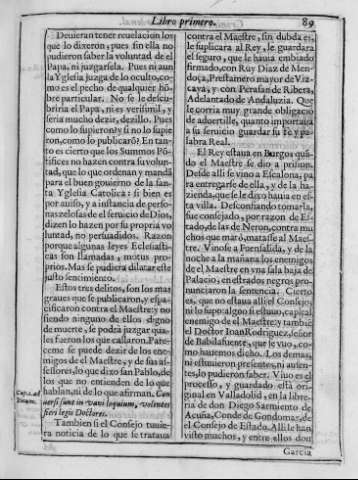 Libro primero. 89
Deuieran tener reuelacion los
que lo dixeron, pues sin ella no
pudieron saber la voluntad de el
Papa, ni juzgarsela. Pues ni aun
la Yglesia juzga de lo oculto, co-
mo es el pecho de qualquier hõ-
bre particular. No se le descu-
briria el Papa, ni es verisimil, y
seria mucho dezir, dezillo. Pues
como lo supieron? y si no lo supie
ron, como lo publicarõ? En tan-
to es cierto que los Summos Põ-
tifices no hazen contra su volun-
tad, que lo que ordenan y mandã
para el buen gouierno de la san-
ta Yglesia Catolica: si bien es
por auiso, y a instancia de perso-
nas zelosas de el seruicio de Dios,
dizen lo hazen por su propria vo
luntad, no persuadidos. Razon
porque algunas leyes Eclesiasti-
cas son llamadas, motus pro-
prios. Mas se pudiera dilatar este
justo sentimiento.
Estos tres delitos, son los mas
graues que se publicaron, y espa-
cificaron contra el Maestre: y no
siendo ninguno de ellos digno
de muerte, se podrà juzgar qua-
les fueron los que callaron. Pare-
ceme se puede dezir de los ene-
migos de el Maestre, y de sus as-
sessores, lo que dixo san Pablo, de
los que no entienden de lo que
hablan, ni de lo que afirman. Con
uersi sunt in vani loquium, volentes
fieri legis Doctores.
Tambien si el Consejo tuuie
ra noticia de lo que se trataua
contra el Maestre, sin dubda es,
le suplicara al Rey, le guardara
el seguro, que le hauia embiado
firmado, con Ruy Diaz de Men-
doça, Prestamero mayor de Viz-
caya, y con Perafan de Ribera,
Adelantado de Andaluzia. Que
le corria muy grande obligaciõ
de aduertille, quanto importaua
a su seruicio guardar su Fè y pa-
labra Real.
El Rey estaua en Burgos quã-
do el Maestre se dio a prision.
Desde alli se vino a Escalona, pa
ra entregarse de ella, y de la ha-
zienda, que le dixo hauia en es-
ta villa. Desconfiando tomarla,
fue consejado, por razon de Es-
tado, de las de Neron, contra mu
chos que matò, matasse al Maes-
tre. Vinose a Fuensalida, y de la
noche a la mañana los enemigos
de el Maestre en vna sala baja de
Palacio, en estrados negros pro-
nunciaron la sentencia. Cierto
es, que no estaua alli el Consejo,
ni lo supo: algno si estuuo, capital
enemigo de el Maestre: y tambiẽ
el Doctor Ioan Rodriguez, señor
de Babilafuente, que le vuo, co-
mo hauemos dicho. Los demas,
ni estuuieron presentes, ni ausen-
tes, lo pudieron saber. Viuo es el
processo, y guardado està ori-
ginal en Valladolid, en la libre-
ria de don Diego Sarmiento de
Acuña, Conde de Gondomar, de
el Consejo de Estado. Alli le han
visto muchos, y entre ellos don
Garcia